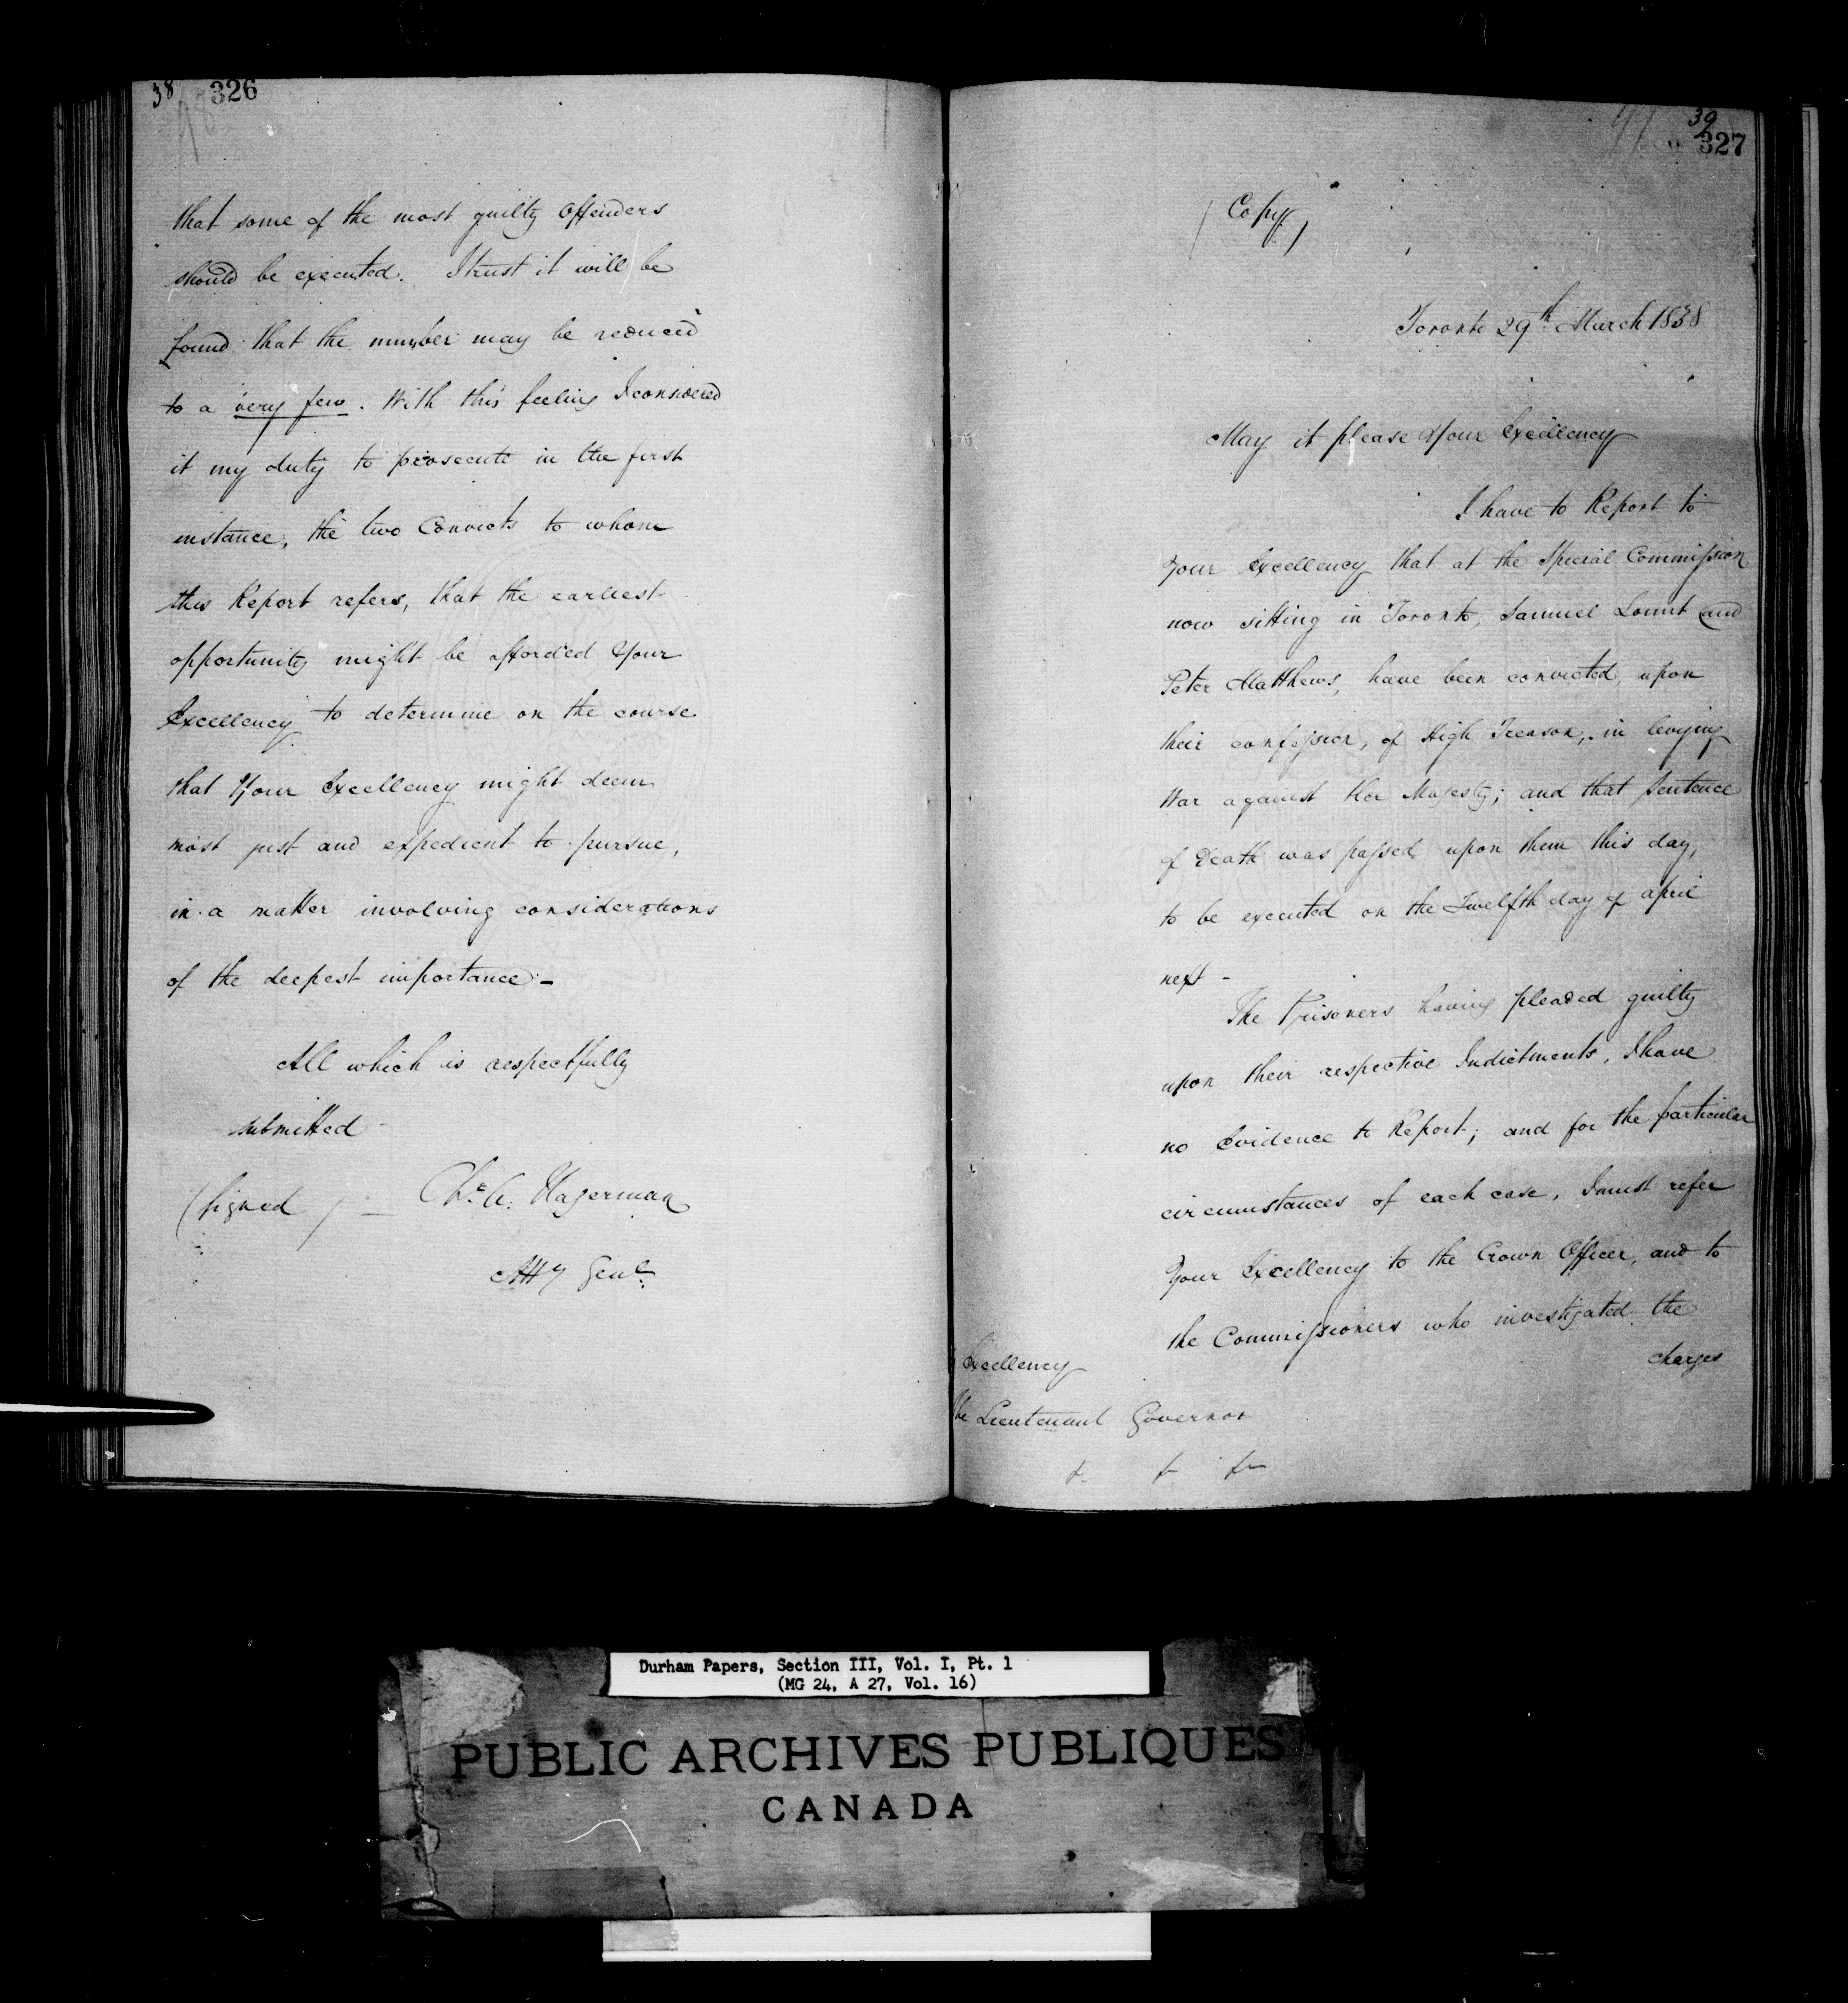 38 326
that some of the most guilty Offenders
should be executed. I trust it will be
found that the number may be reduced
to a very few. With this feeling I considered
it my duty to prosecute in the first
instance, the two Convicts to whom
this Report refers, that the earliest
opportunity might be afforded Your
Excellency to determine on the course
that Your Excellency might deem
most just and expedient to pursue,
in a matter involving considerations
of the deepest importance –
All which is respectfully
submitted
(Signed) – Chs. A. Hagerman
Atty Genl.
39
327
(Copy)
Toronto 29th March 1838
May it please Your Excellency
I have to Report to
Your Excellency that at the Special Commission
now sitting in Toronto, Samuel Lount and
Peter Matthews, have been convicted, upon
their confession, of High Treason, in levying
War against Her Majesty; and that Sentence
of Death was passed upon them this day,
to be executed on the Twelfth day of April
next –
The Prisoners having pleaded guilty
upon their respective Indictments, I have
no Evidence to Report; and for the particular
circumstances of each case, I must refer
Your Excellency to the Crown Officer, and to
the Commissioners who investigated the
charges
Excellency
the Lieutenant Governor
&c &c &c
Durham Papers, Section III, Vol. I, Pt. 1
(MG 24, A 27, Vol. 16)
PUBLIC ARCHIVES PUBLIQUES
CANADA